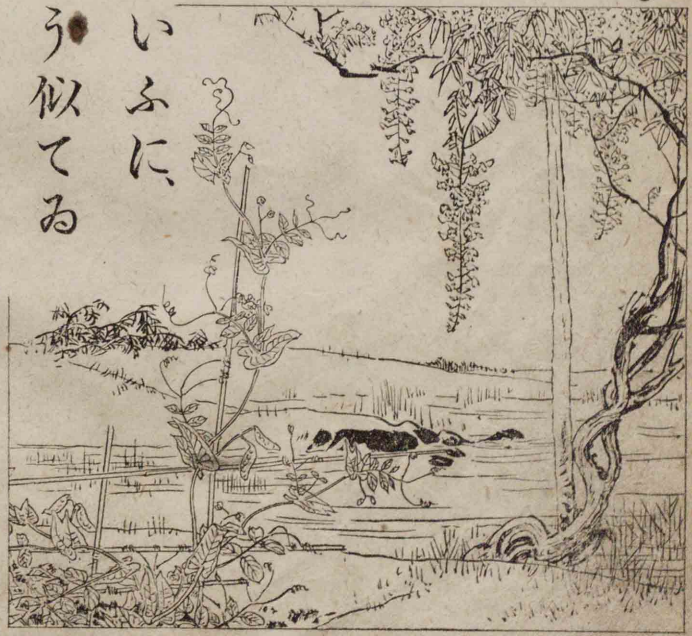 いふに、
う似てゐ